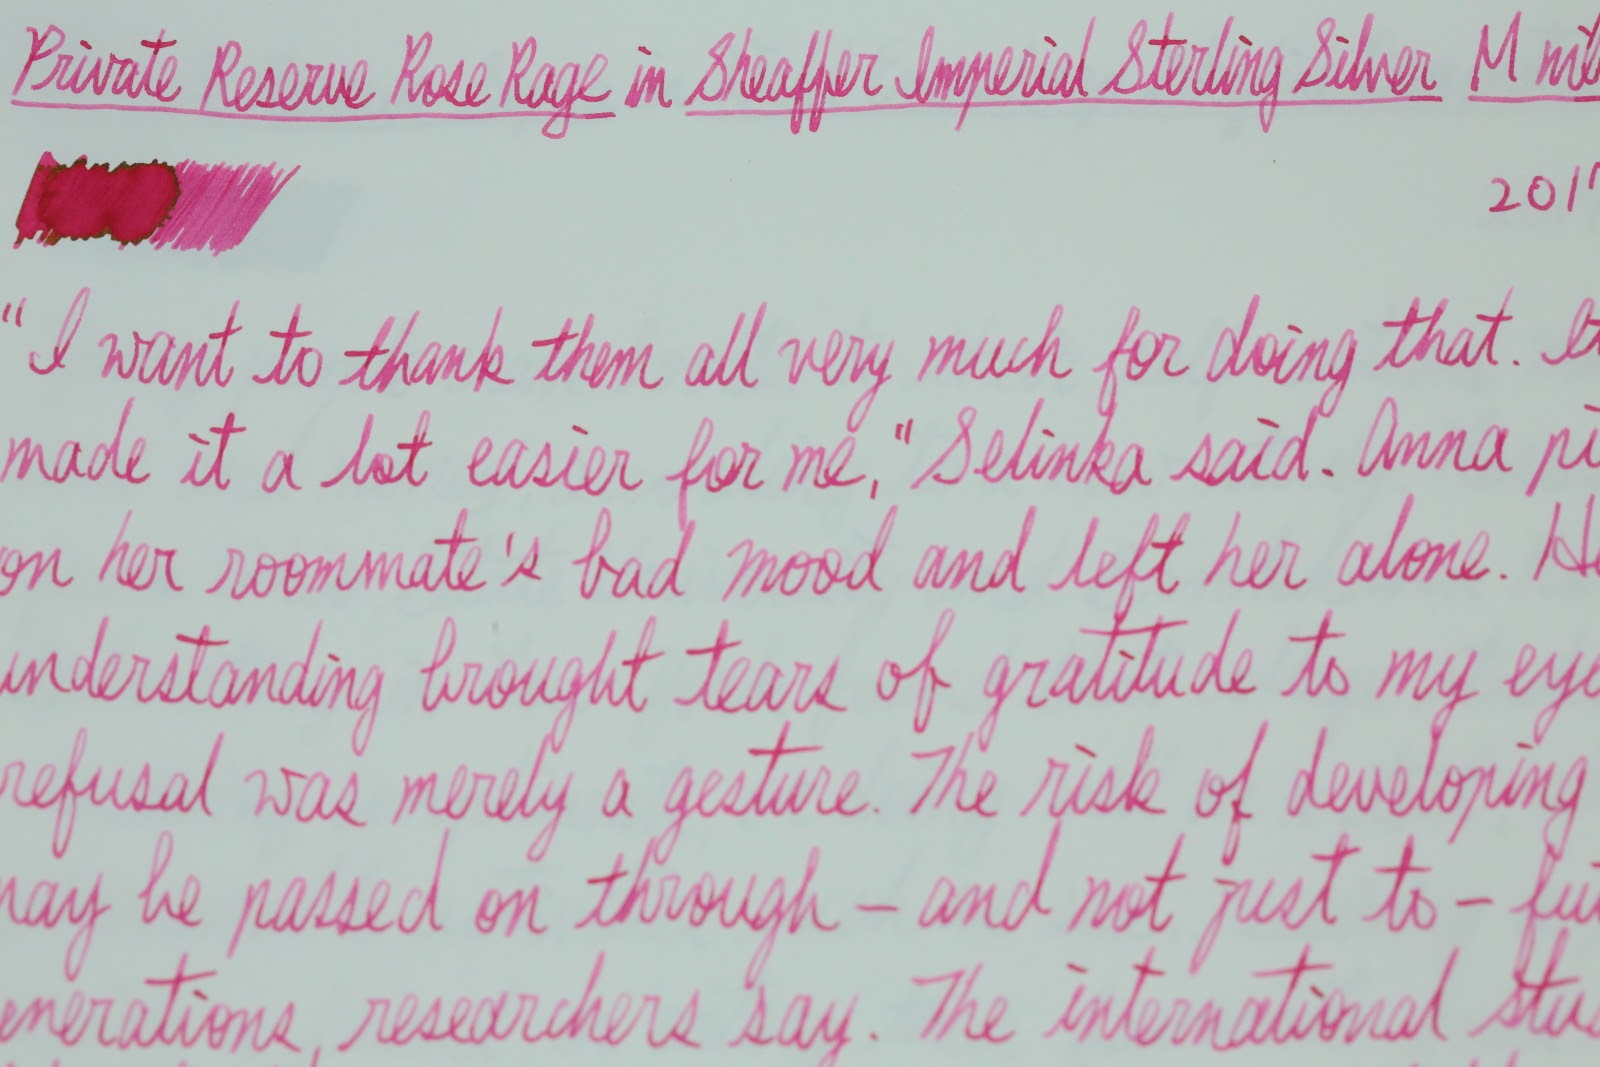 Private Reserve Rose Rage in Sheaffer Imperial Sterling Silver M
201
"I want to thank them all very much for doing that.
made it a lot easier for me," Selinka said. Anna
on her roommate's bad mood and left her alone.
understanding brought tears of gratitude to my
refusal was merely a gesture. The risk of developing
may be passed on through – and not just to –
enerations, researchers say. The international